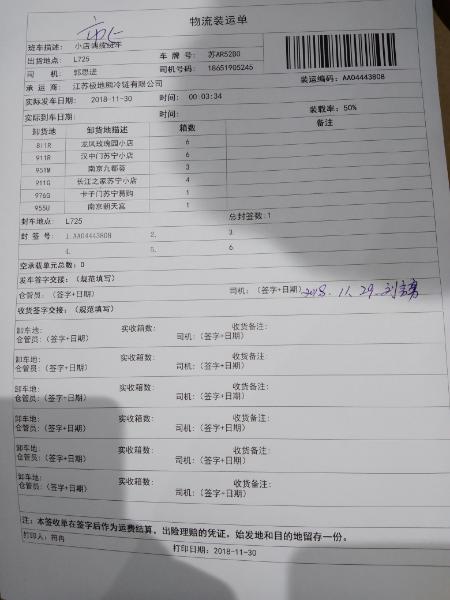 物流装运单
班车描述: 小店端拔货车
出货地点: L725 车 牌 号: 苏AR52B0
司 机: 郭思进 司机号码: 18651905245
承 运 商: 江苏极地熊冷链有限公司 装运编码: AA04443808
实际发车日期: 2018-11-30 时间: 00:03:34
实际到车日期: 时间: 装载率: 50%
卸货地 卸货地描述 箱数 备注
811R 龙凤玫瑰园小店 6
911R 汉中门苏宁小店 6
951W 南京九都荟 3
911G 长江之家苏宁小店 4
976G 卡子门苏宁易购 1
955U 南京朝天宫 1
封车地点: L725 总封签数:1
封 签 号: 1.AA04443808 2. 3.
4. 5. 6.
空承载单元总数: 0
发车签字交接:(规范填写)
仓管员:(签字+日期) 司机:(签字+日期) 2018.11.29
收货签字交接:(规范填写)
卸车地: 实收箱数: 收货备注:
仓管员:(签字+日期) 司机:(签字+日期)
卸车地: 实收箱数: 收货备注:
仓管员:(签字+日期) 司机:(签字+日期)
卸车地: 实收箱数: 收货备注:
仓管员:(签字+日期) 司机:(签字+日期)
卸车地: 实收箱数: 收货备注:
仓管员:(签字+日期) 司机:(签字+日期)
卸车地: 实收箱数: 收货备注:
仓管员:(签字+日期) 司机:(签字+日期)
卸车地: 实收箱数: 收货备注:
仓管员:(签字+日期) 司机:(签字+日期)
注:本签收单在签字后作为运费结算,出险理赔的凭证,始发地和目的地留存一份。
打印人: 符冉
打印日期:2018-11-30